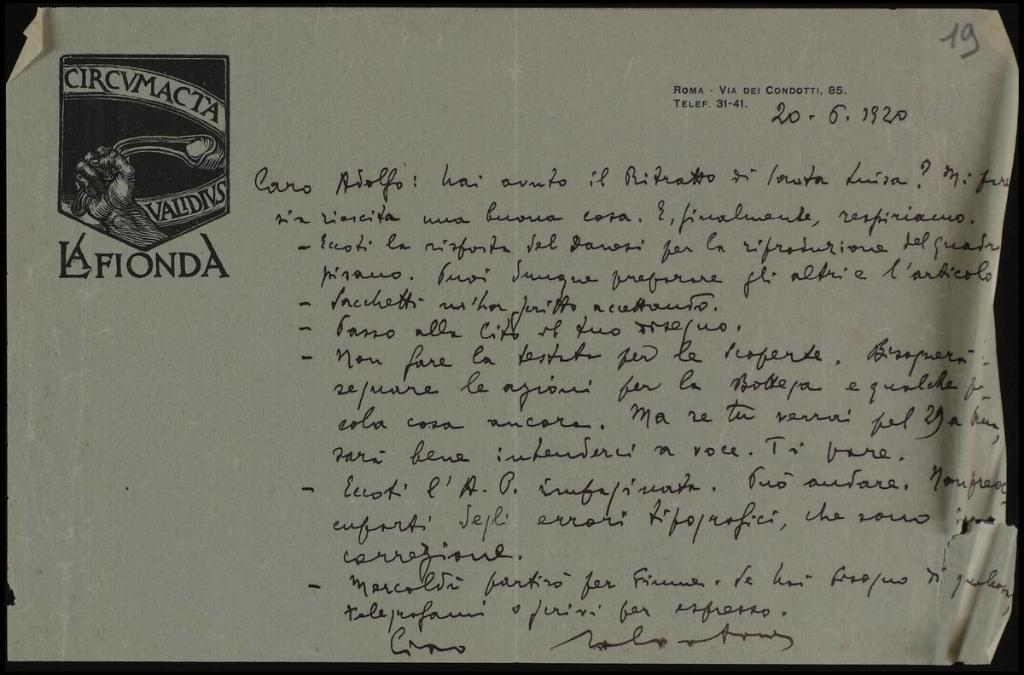 19
CIRCVMACTA
VALIDIVS
LA FIONDA
ROMA - VIA DEI CONDOTTI, 85.
TELEF. 31-41.
20 - 6. 1920
Caro Adolfo: hai avuto il Ritratto di Santa Luisa? Mi pare
sia riescita una buona cosa. E, finalmente, respiriamo.
- Eccoti la risposta del Danesi per la riproduzione del quadro
pisano. Puoi dunque preparare gli altri e l'articolo
- Sacchetti m'ha scritto accettando.
- Passo alla Cito il tuo disegno.
- Non fare la testata per le Scoperte. Bisognerà
segnare le azioni per la Bottega e qualche pic
cola cosa ancora. Ma se tu verrai pel 29 a
sarà bene intenderci a voce. Ti pare.
- Eccoti l'A. P. impaginata. Può andare. Non preoc
cuparti degli errori tipografici, che sono in
correzione.
- Mercoldì partirò per Fiume. Se hai bisogno di qualcosa,
telegrafami o scrivi per espresso.
Ciao